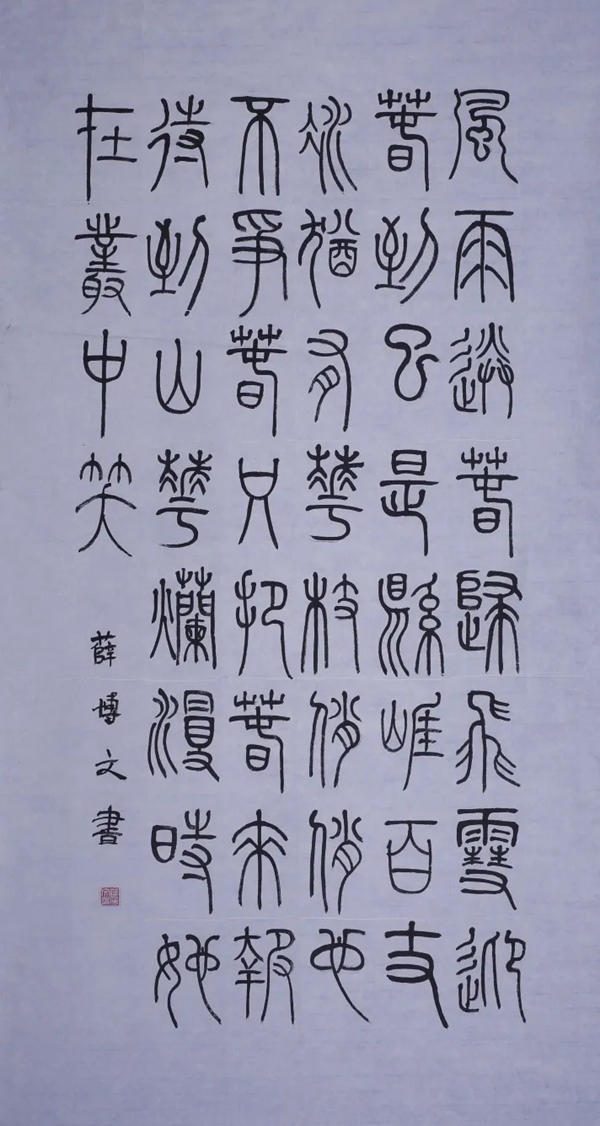 風雨送春歸飛雪迎
春到已是縣崖百丈
冰猶有華枝俏俏也
不爭春只把春來報
待到山華爛漫時她
在叢中笑
薛博文書